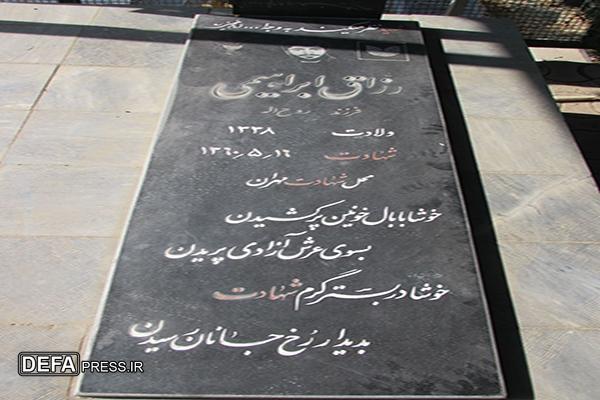 شهید نظر میکند به وجه ا...
رزاق ابراهیمی
فرزند روح الله
ولادت ۱۳۳۸
شهادت ۱۳۶۰٫۵٫۱۶
محل شهادت مهران
خوشا با بال خونین پر کشیدن
بسوی عرش آزادی پریدن
خوشا در بستر گرم شهادت
بدیدار رخ جانان رسیدن
DEFA PRESS.IR